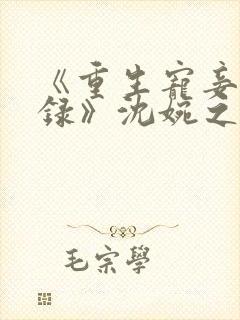 《重生寵妾
錄》沈婉之
毛宗學